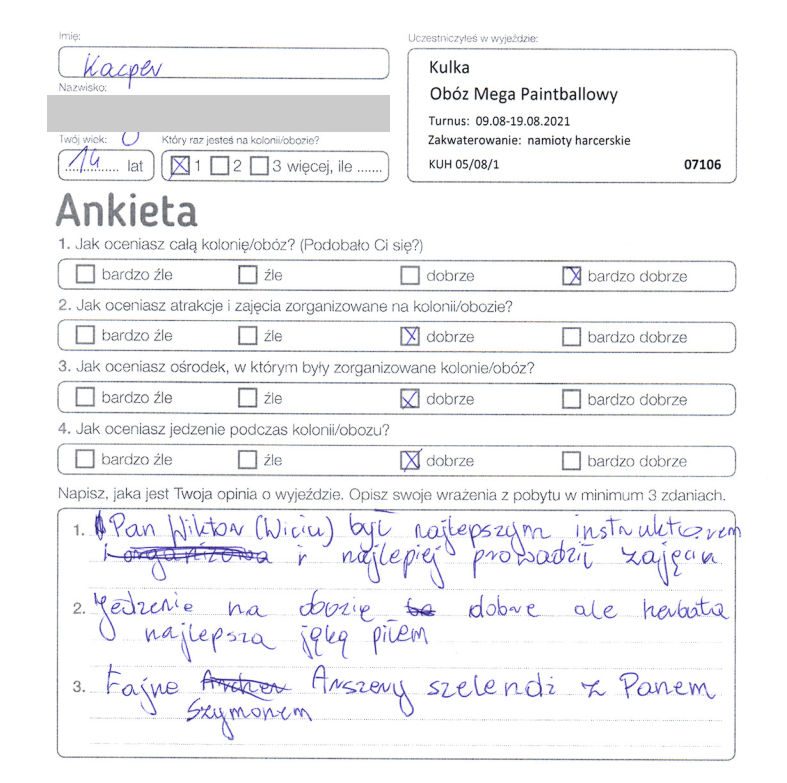 Imię:
Kacper
Nazwisko:
Twój wiek:
14 lat
Który raz jesteś na kolonii/obozie?
1 2 3 więcej, ile .......
Uczestniczyłeś w wyjeździe:
Kulka
Obóz Mega Paintballowy
Turnus: 09.08-19.08.2021
Zakwaterowanie: namioty harcerskie
KUH 05/08/1 07106
Ankieta
1. Jak oceniasz całą kolonię/obóz? (Podobało Ci się?)
bardzo źle źle dobrze bardzo dobrze
2. Jak oceniasz atrakcje i zajęcia zorganizowane na kolonii/obozie?
bardzo źle źle dobrze bardzo dobrze
3. Jak oceniasz ośrodek, w którym były zorganizowane kolonie/obóz?
bardzo źle źle dobrze bardzo dobrze
4. Jak oceniasz jedzenie podczas kolonii/obozu?
bardzo źle źle dobrze bardzo dobrze
Napisz, jaka jest Twoja opinia o wyjeździe. Opisz swoje wrażenia z pobytu w minimum 3 zdaniach.
1. Pan Wiktor (Wiciu) był najlepszym instruktorem
i organizowa i najlepiej prowadził zajęcia
2. Jedzenie na obozie dobre ale herbata
najlepsza jąką piłem
3. Fajne Anszery szelendż z Panem
Szymonem